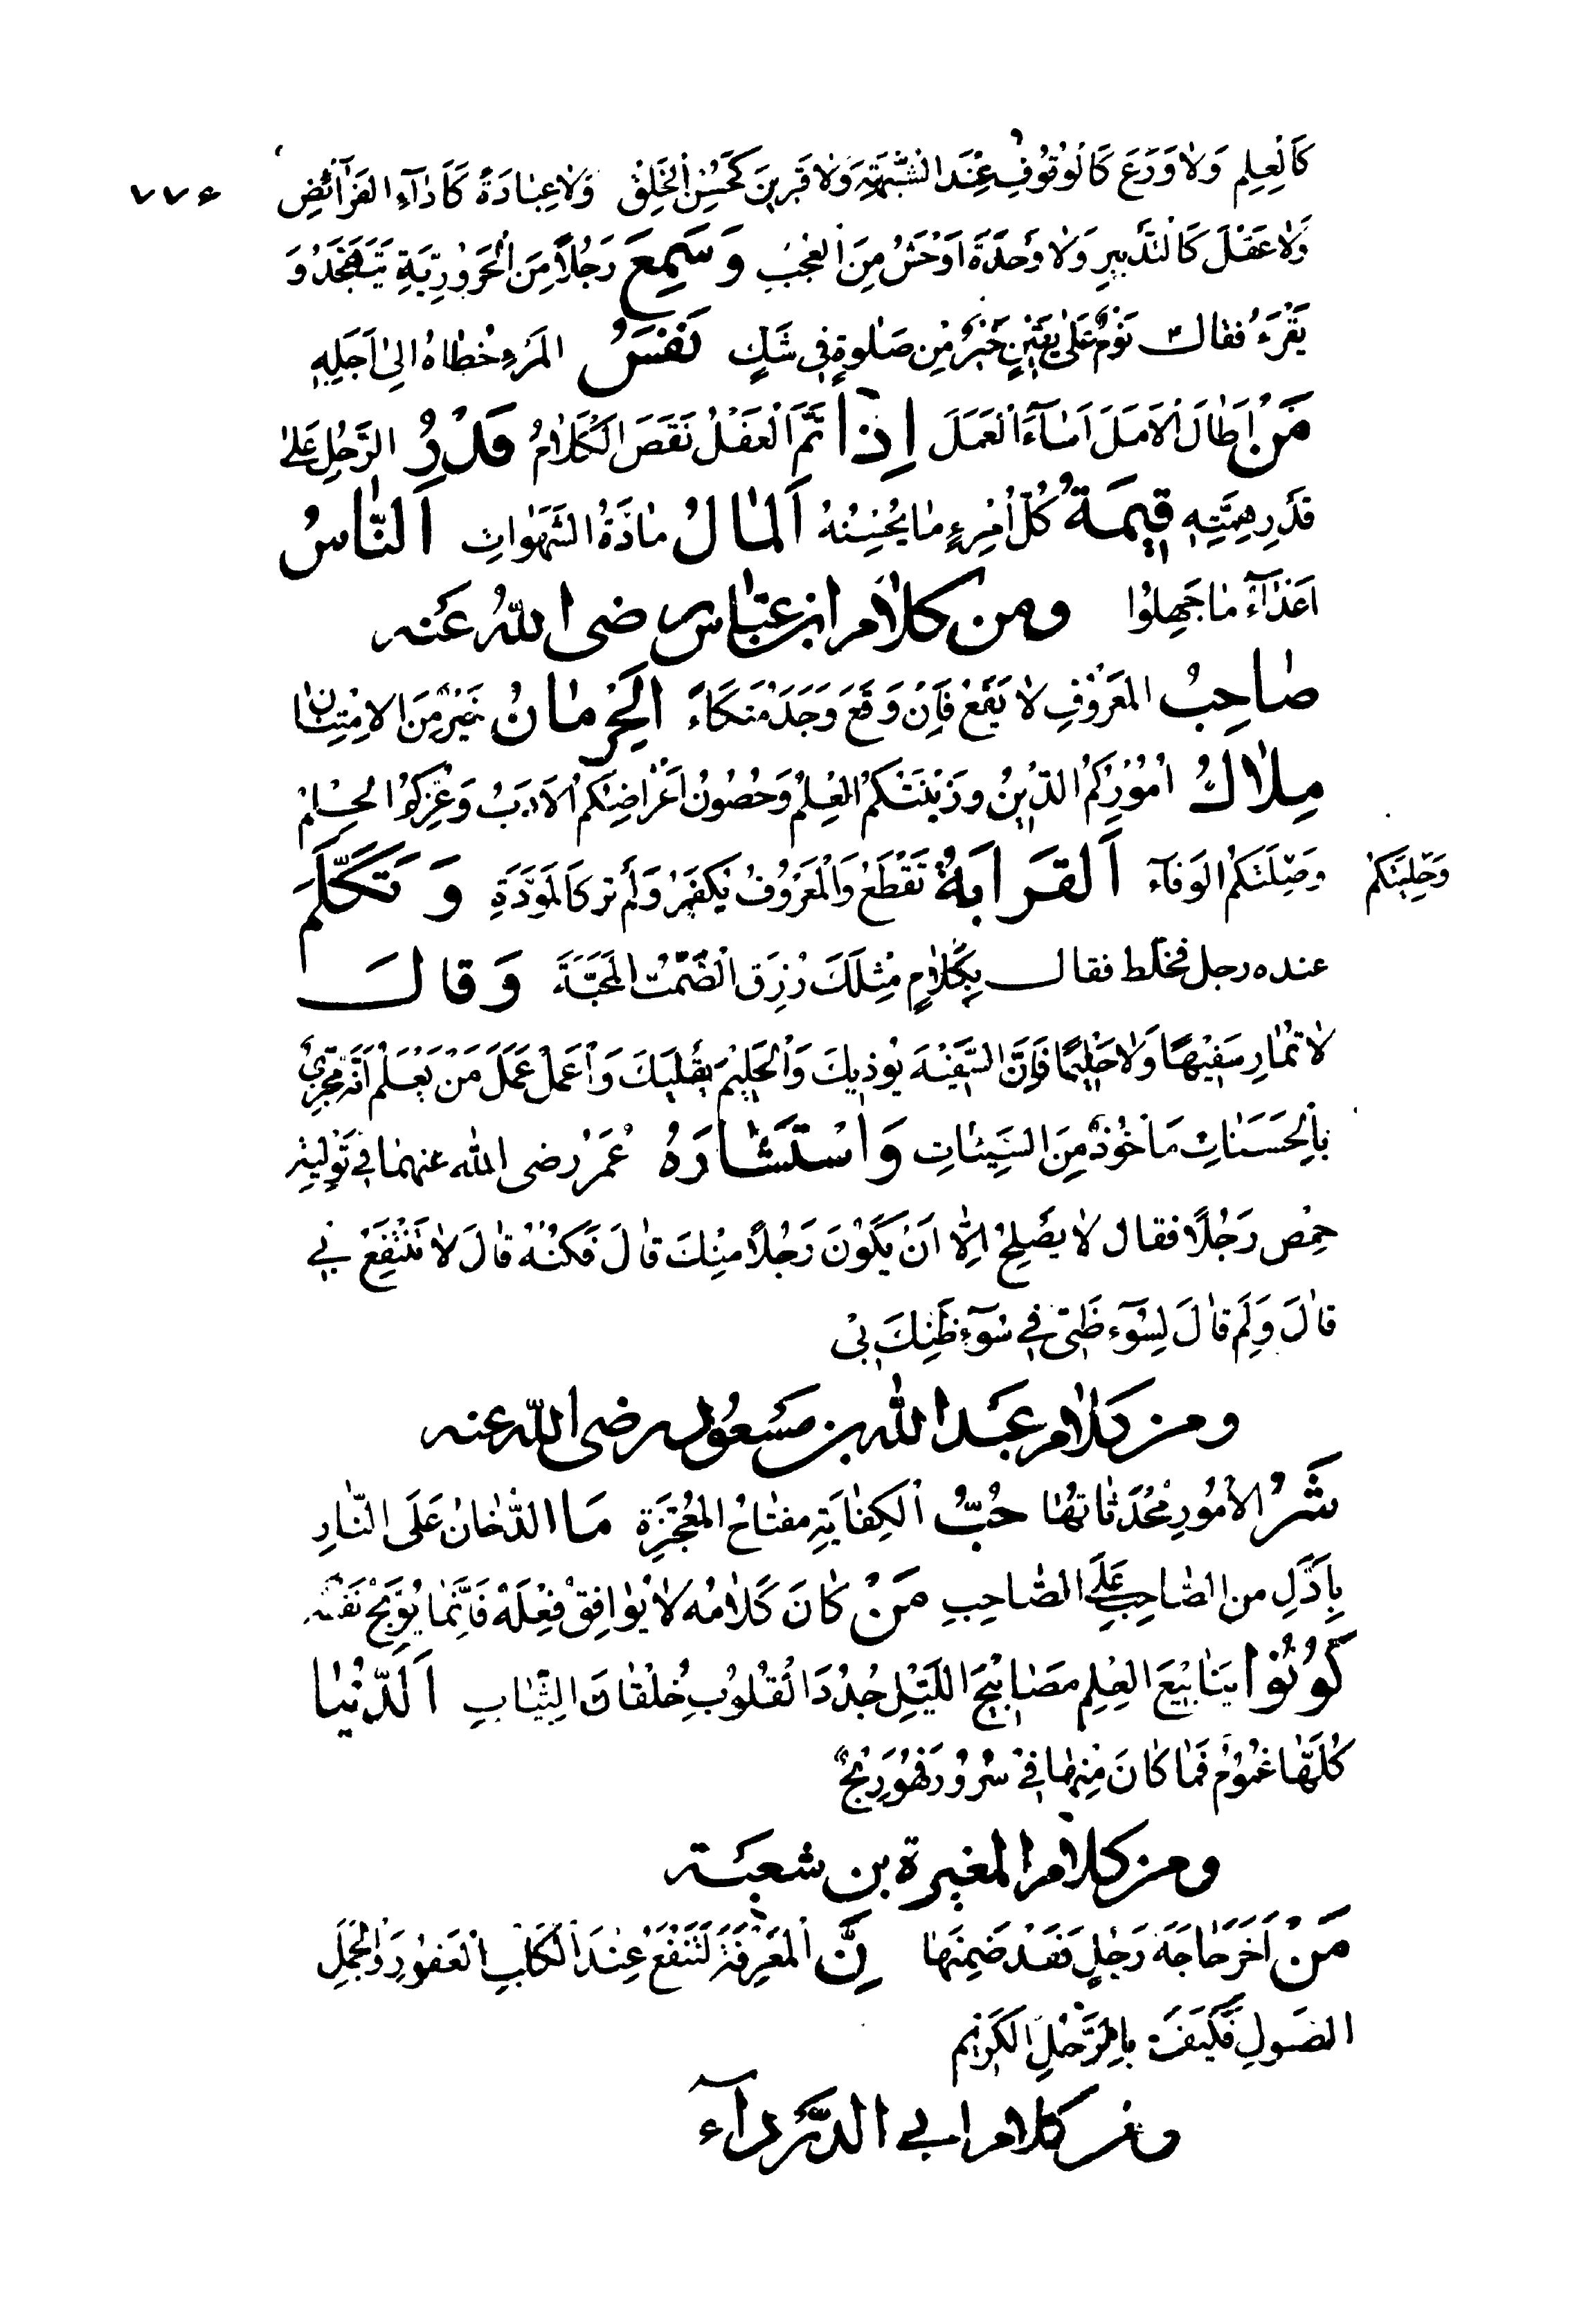 كَالْعِلِمِ وَلاٰوَرَعَ كَالْوُقُوفِ عِنْدَ الشُّبْهَةِ وَلاٰ قَرِينَ كَحُسْنِ الْخُلْقِ وَلاٰعِبٰادَةَ كَاَدٰآءِ الفَرٰآئضِ
وَلاٰعَقْلَ كَالتَّدْبيرِ وَلاٰ وَحْدَةَ اَوْحَشُ مِنَ الْعُجْبِ وَسَمِعَ رَجُلاً مِنَ الْحَرُورِيَّةِ يَتَهَجَّدُ وَ
يَقْرَءُ فقال نَوْمٌ عَلىٰ يَقينٍ خَيْرٌ مِن صَلٰوةٍ في شَكٍ نَفَسُ المَرْءِ خُطٰاهُ اِلىٰ اَجَلِهِ
مَنْ اَطٰالَ الْاَمَلَ اَسٰآءَ الْعَمَلَ اِذٰا تَمَّ الْعَقْلُ نَقَصَ الْكَلاٰمُ قَدْرُ الرَّجُلِ عَلىٰ
قَدْرِ هِمَّتِهِ قيمَةُ كُلِّ امْرِءٍ مٰا يُحْسِنُهُ اَلمٰالُ مٰادَّةُ الشَهَوٰاتِ اَلنّٰاسُ
اَعْدٰآءُ مٰا جَهِلوُا ومن كلاٰم ابن عبّٰاس رضى اللّٰهُ عَنه
صٰاحِبُ المَعْرُوفِ لاٰ يَقَعُ فَاِنْ وَقَعَ وَجَدَ مُتَكَاءً الْحِرْمٰانُ خَيْرٌ مِنَ الامْتِنٰان
مِلاٰكُ اُمُورِكُمُ الدّينُ وزَيْنَتُكُمُ الْعِلْمُ وَحُصُونُ اَعْرٰاضِكُمُ الْاَدَبُ وَعِزُّكُمُ الحِلْمُ
وَحِلْيَتُكُمْ وَصِلَتُكُمُ الوَفٰآء اَلقَرٰابَةُ تُقْطَعُ وَالْمَعْرُوفُ يُكْفَرُ وَلَمْ تر كَالْمَوَدَّةِ وَتَكَلَّمَ
عنده رجل فخلّط فقال بِكَلاٰمٍ مِثْلِكَ رُزِقَ الْصَّمْتُ الْمَحَبَّةَ وَقال
لاٰ تُمٰارِ سَفيهًا وَلاٰ حَليمًا فَاِنَّ السَّفيهَ يُوذيكَ وَالْحَليمَ يَقْليكَ وَاعْمَلْ عَمَلَ مَنْ يَعْلَمُ اَنَّهُ مَجْزِيٌّ
بِالْحَسَنٰاتِ مَاْخُوذٌ مِنَ السَيِّئٰاتِ وَاسْتَشٰارَهُ عُمَرُ رضى اللّٰه عنهمٰا في تَوْلِيَةِ
حِمْص رَجُلاً فقال لاٰ يَصْلِحُ اِلّٰا اَنْ يَكُونَ رَجُلاً مِنْكَ قٰالَ فَكُنْهُ قٰالَ لاٰ تَنْتَفِعُ بي
قٰالَ وَلِمَ قٰالَ لِسُوٓءِ ظَنّي في سُوٓءِ ظَنِّكَ بي
ومن كلاٰم عَبْد اللّٰه بن مَسْعُود رضى اللّٰه عنه
شَرُّ الْاُمُورِ مُحْدَثٰاتُهٰا حُبُّ الْكِفٰايَةِ مفتٰاحُ المُعْجِزَةِ مَا الدُّخٰانُ عَلَى النّٰارِ
بِاَدَلِّ من الصّٰاحِبِ عَلَى الصّٰاحِبِ مَنْ كٰانَ كَلاٰمُه لاٰ يُوٰافِقُ فِعْلَهُ فَاِنَّمٰا يُوَبِّخُ نَفْسَه
كُونُوا يَنٰابيعَ الْعِلْمِ مَصٰابيحَ اللَّيْلِ جُدُدَ الْقُلُوبِ خُلْقٰانَ الثِّيٰابِ اَلدُّنْيٰا
كُلُّهٰا غُمُومٌ فَمٰا كٰانَ مِنْهٰا في سُرُورٍ فَهُوَ رِبْحٌ
ومن كلاٰم المغيرة بن شعبَة
مَنْ اَخَّرَ حٰاجَةَ رَجُلٍ فَقَدْ ضَمِنَهٰا اِنَّ الْمَعْرِفَةَ لَتَنْفَعُ عِنْدَ الْكَلْبِ الْعَقُورِ وَالْجَمَلِ
الصَوُلِ فَكَيْفَ بِالرَّجُلِ الْكَريمِ
ومن كلاٰم ابي الدَّرْدٰآء